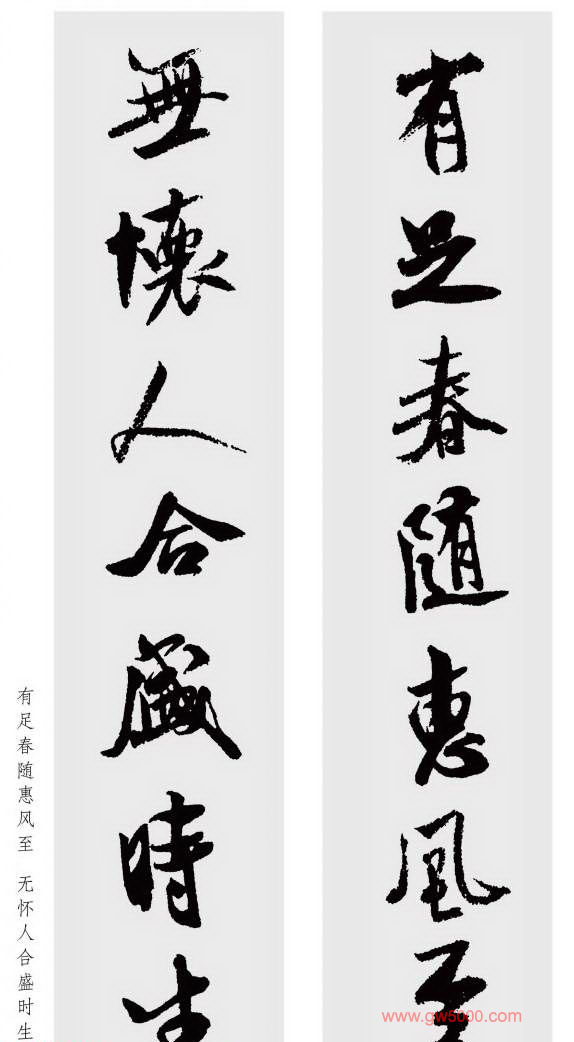 有足春随惠風至
無懷人合盛時生
有足春随惠风至 无怀人合盛时生
www.gw5000.com